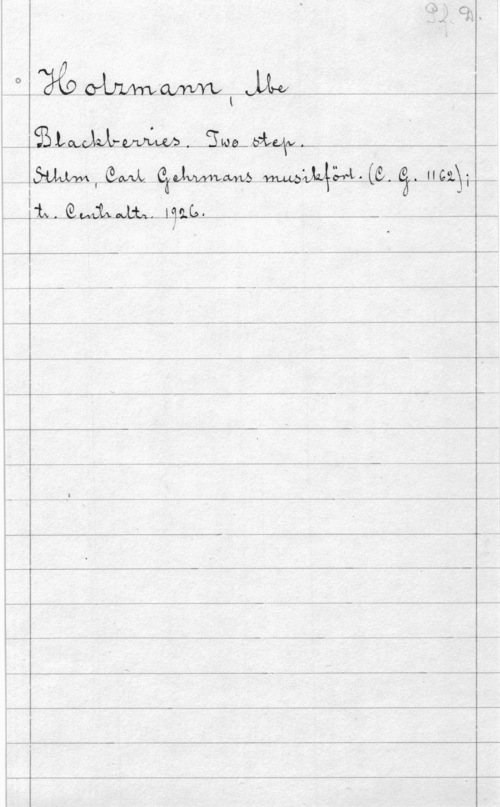 Pf. D.
Holzmann, Abe
Blackberries. Two step.
Sthlm, Carl Gehrmans musikförl. (C. G. 1162);
tr. Centraltr. 1926.